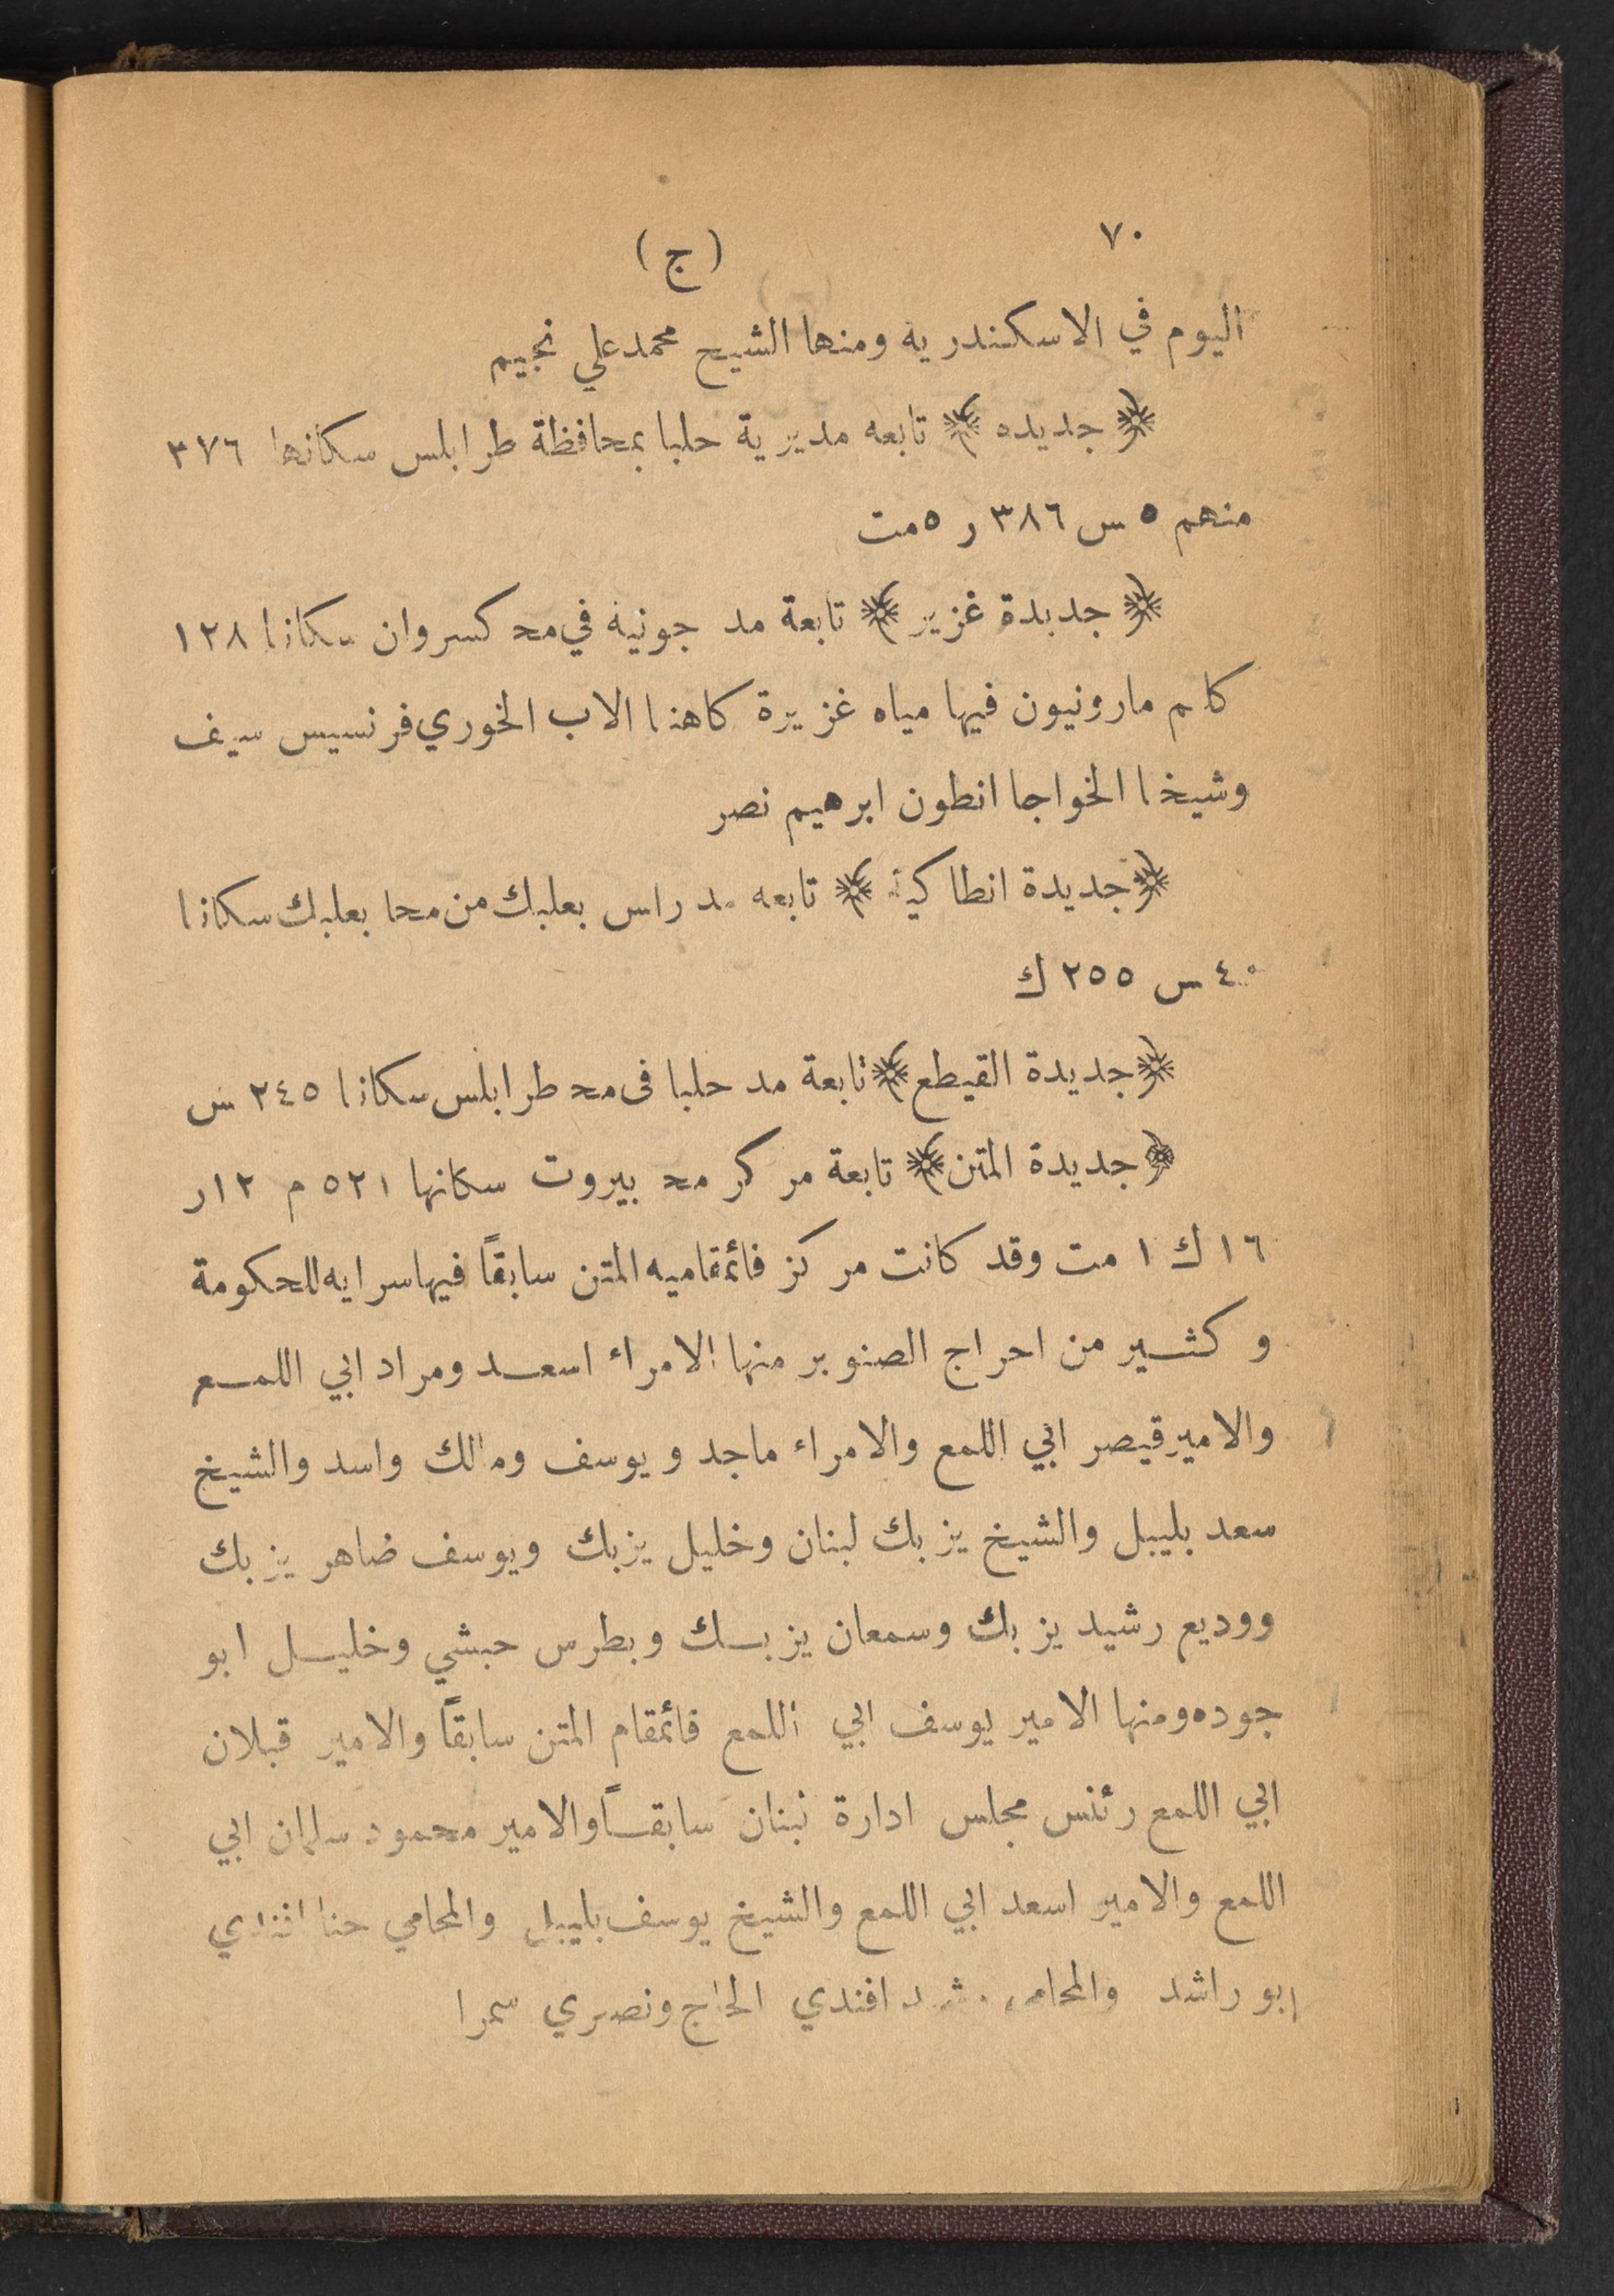 ٧٠
( ج )
اليوم في الاسكندرية ومنها الشيخ محمد علي نجيم
﴿ جديده ﴾ تابعه مديرية حلبا بمحافظة طرابلس سكانها ٣٧٦
منهم ٥ س ٣٨٦ ر ٥ مت
﴿ جديدة غزير ﴾ تابعة مد جونيه في مح كسروان سكانها ١٢٨
كلهم مارونيون فيها مياه غزيرة كاهنها الاب الخوري فرنسيس سيف
وشيخها الخواجا انطون ابرهيم نصر
﴿ جديدة انطاكية ﴾ تابعه مد راس بعلبك من محا بعلبك سكانها
٤٠ س ٢٥٥ ك
﴿ جديدة القيطع ﴾ تابعة مد حلبا فى مح طرابلس سكانها ٢٤٥ س
﴿ جديدة المتن ﴾ تابعة مركز مح بيروت سكانها ٥٢١ م ١٢ ر
١٦ ك ١ مت وقد كانت مركز قائمقاميه المتن سابقاً فيها سرايه للحكومة
وكثير من احراج الصنوبر منها الامراء اسعد ومراد ابي اللمع
والامير قيصر ابي اللمع والامراء ماجد ويوسف ومالك واسد والشيخ
سعد بليبل والشيخ يزبك لبنان وخليل يزبك ويوسف ضاهر يزبك
ووديع رشيد يزبك وسمعان يزبك وبطرس حبشي وخليل ابو
جوده ومنها الامير يوسف ابي اللمع قائمقام المتن سابقاً والامير قبلان
ابي اللمع رئس مجلس ادارة لبنان سابقاً والامير محمود سلمان ابي
اللمع والامير اسعد ابي اللمع والشيخ يوسف بليبل والمحامي حنا افندي
ابو راشد والمحامي افندي الحاج ونصري سمرا